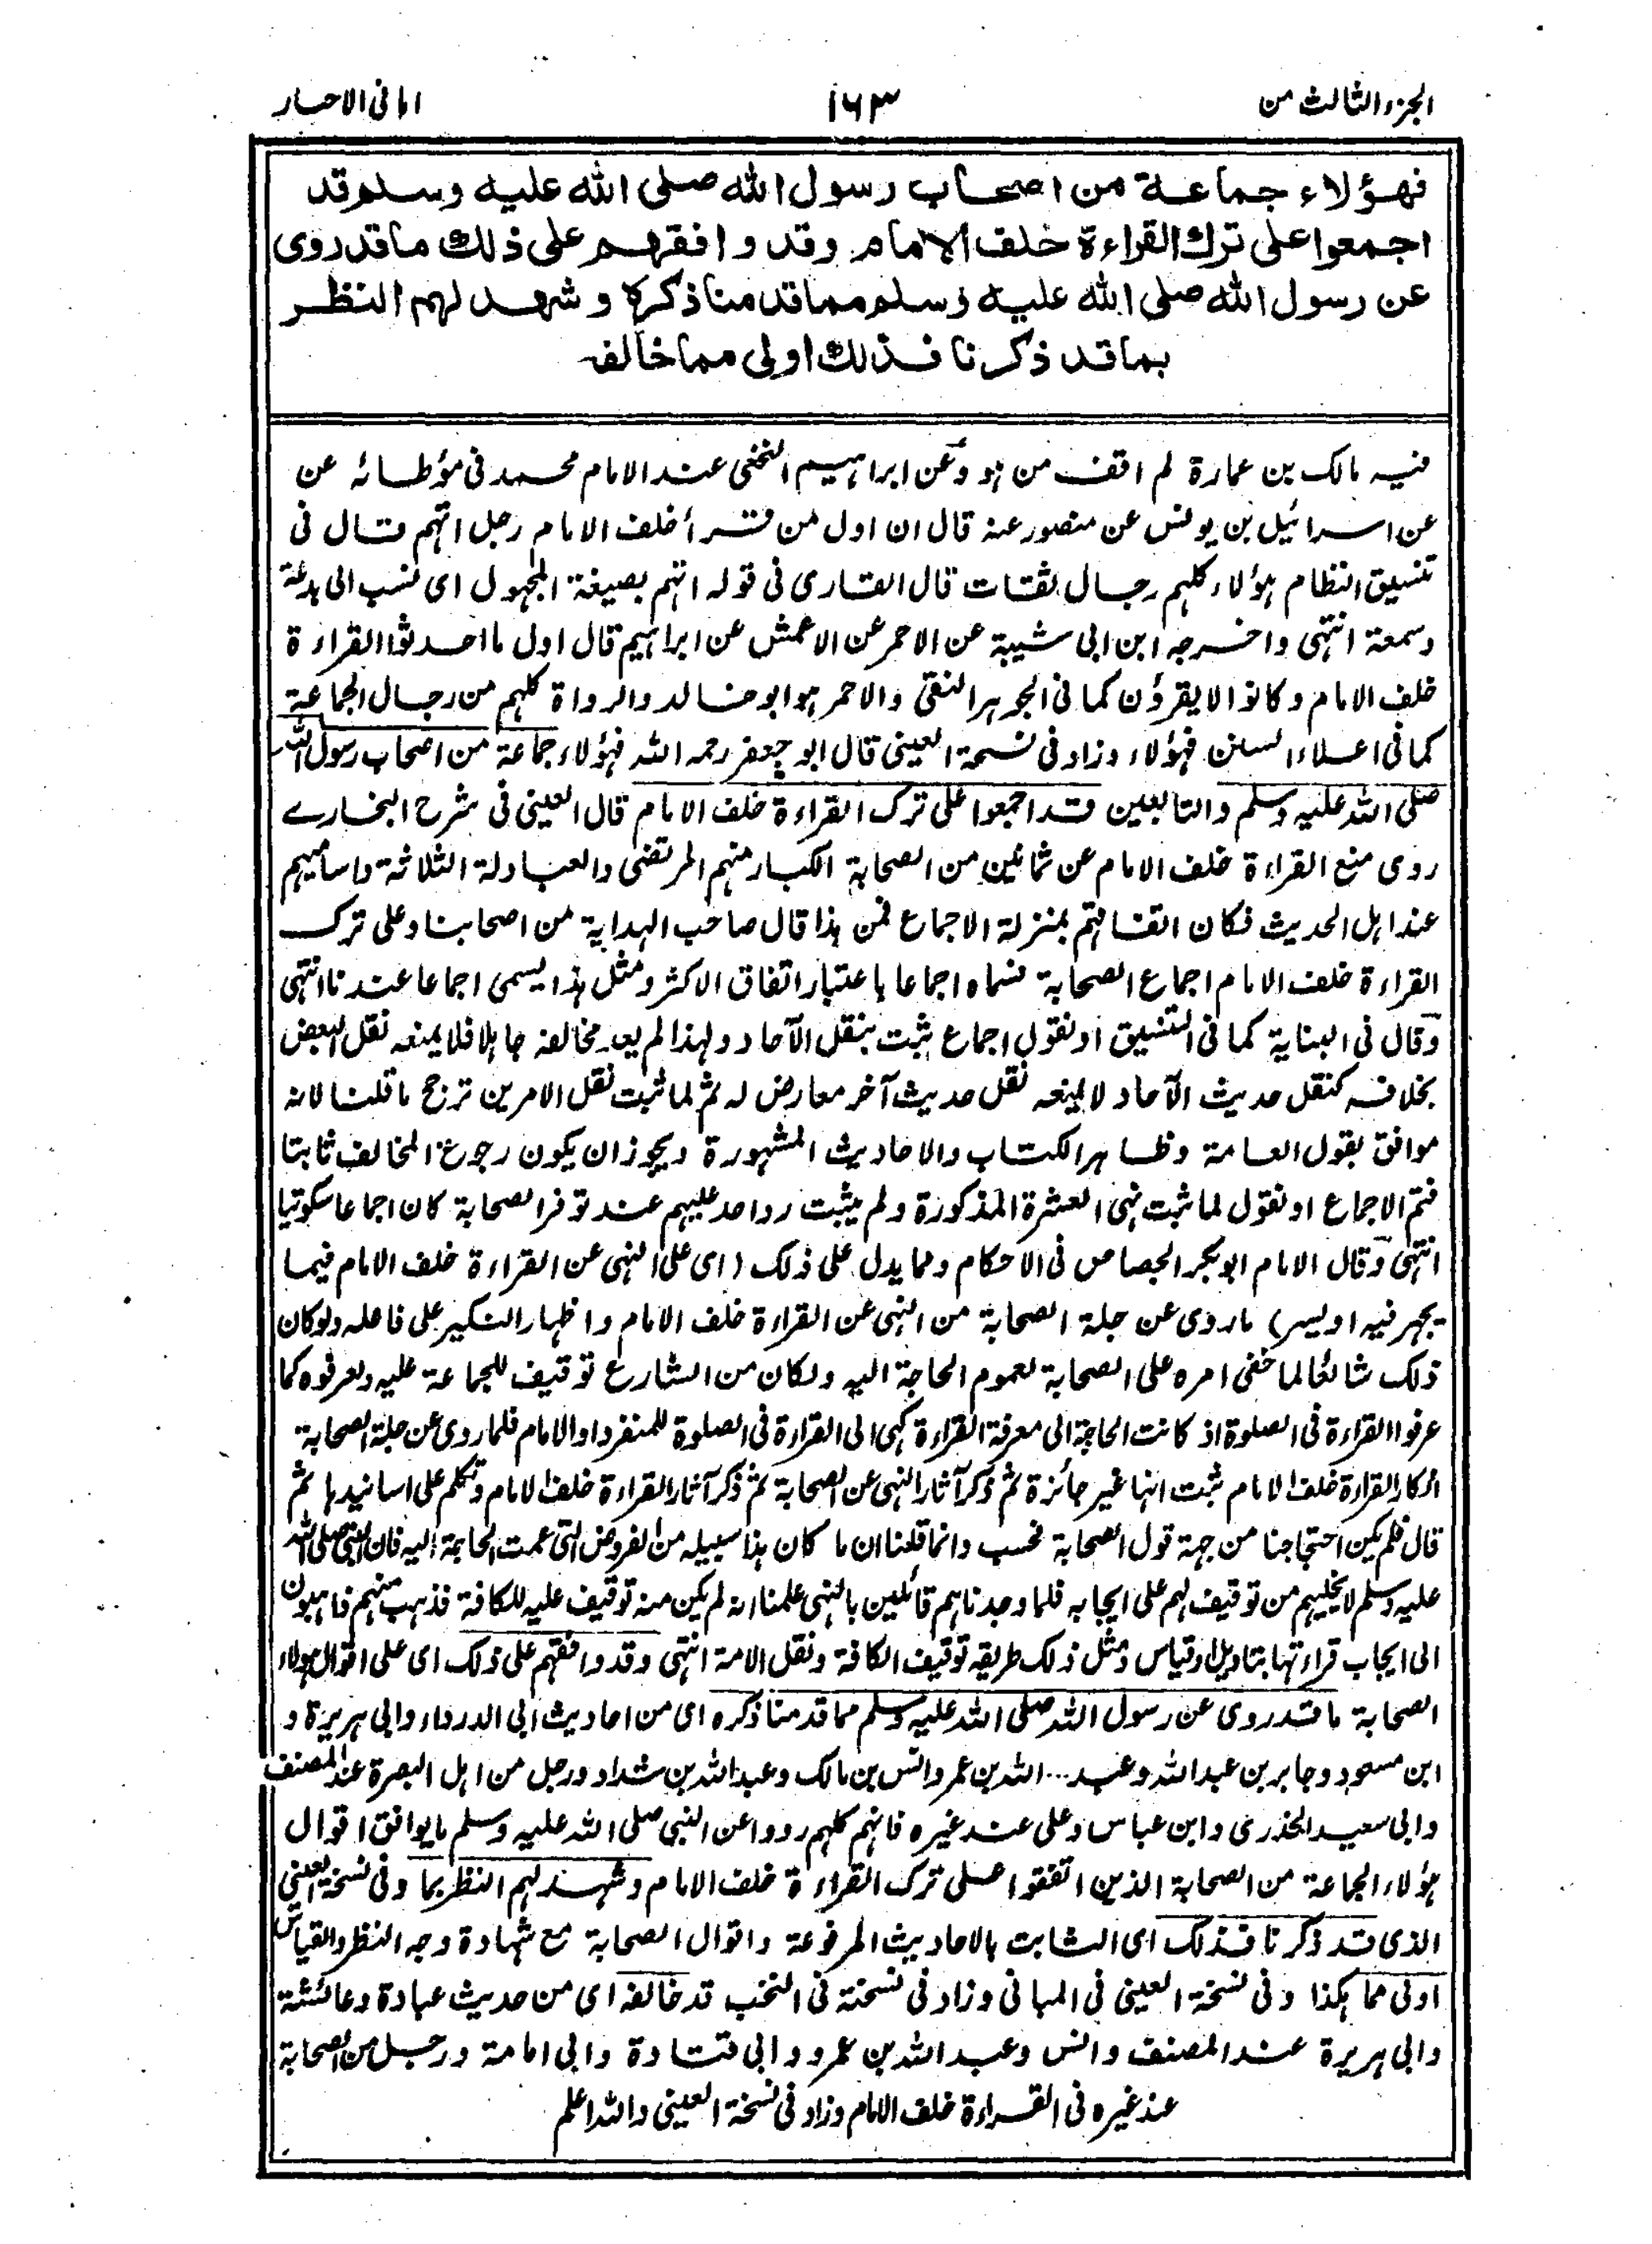 الجزء الثالث من ١٦٣ امانی الاحبار
فهؤلاء جماعة من اصحاب رسول الله صلى الله عليه وسلم قد
اجمعوا على ترك القراءة خلف الامام وقد وافقهم على ذلك ما قد روى
عن رسول الله صلى الله عليه وسلم مما قدمنا ذكره وشهد لهم النظر
بما قد ذكرنا فذلك اولى مما خالفه
فیه مالک بن عمارة لم اقف من ہو وعن ابراہیم النخعی عند الامام محمد فی مؤطائہ عن
عن اسرائیل بن یونس عن منصور عنہ قال ان اول من قرأ خلف الامام رجل اتہم قال فی
تنسیق النظام ہؤلاء کلہم رجال ثقات قال القاری فی قولہ اتہم بصیغة المجہول ای نسب الی بدعة
وسمعة انتہی واخرجہ ابن ابی شیبة عن الاحمر عن الاعمش عن ابراہیم قال اول ما احدثوا القراءة
خلف الامام وکانوا لا یقرؤن کما فی الجوہر النقی والاحمر ہو ابو خالد والرواة کلہم من رجال الجماعة
کما فی اعلاء السنن فہؤلاء وزاد فی نسخة العینی قال ابو جعفر رحمہ اللہ فہؤلاء جماعة من اصحاب رسول اللہ
صلی اللہ علیہ وسلم والتابعین قد اجمعوا علی ترک القراءة خلف الامام قال العینی فی شرح البخاری
روی منع القراءة خلف الامام عن ثمانین من الصحابة الکبار منہم المرتضی والعبادلة الثلاثة واسامیہم
عند اہل الحدیث فکان اتفاقہم بمنزلة الاجماع فمن ہذا قال صاحب الہدایة من اصحابنا وعلی ترک
القراءة خلف الامام اجماع الصحابة فسماہ اجماعا باعتبار اتفاق الاکثر ومثل ہذا یسمی اجماعا عندنا انتہی
وقال فی البنایة کما فی التنسیق او نقول اجماع ثبت بنقل الآحاد ولہذا لم یعد مخالفہ جاہلا فلا یمنعہ نقل البعض
بخلافہ کنقل حدیث الآحاد لا یمنعہ نقل حدیث آخر معارض لہ ثم لما ثبت نقل الامرین ترجح ما قلنا لانہ
موافق بقول العامة وظاہر الکتاب والاحادیث المشہورة ویجوز ان یکون رجوع المخالف ثابتا
فتم الاجماع او نقول لما ثبت نہی العشرة المذکورة ولم یثبت رد احد علیہم عند توفر الصحابة کان اجماعا سکوتیا
انتہی وقال الامام ابوبکر الجصاص فی الاحکام ومما یدل علی ذلک (ای علی النہی عن القراءة خلف الامام فیما
یجہر فیہ او یسر) ما روی عن جلة الصحابة من النہی عن القراءة خلف الامام واظہار النکیر علی فاعلہ ولو کان
ذلک شائعا لما خفی امرہ علی الصحابة لعموم الحاجة الیہ ولکان من الشارع توقیف للجماعة علیہ ولعرفوہ کما
عرفوا القراءة فی الصلوة اذ کانت الحاجة الی معرفة القراءة کہی الی القراءة فی الصلوة للمنفرد او الامام فلما روی عن جلة الصحابة
انکار القراءة خلف الامام ثبت انہا غیر جائزة ثم ذکر آثار النہی عن الصحابة ثم ذکر آثار القراءة خلف الامام وتکلم علی اسانیدہا ثم
قال فلم یکن احتجاجنا من جہة قول الصحابة فحسب وانما قلنا ان ما کان ہذا سبیلہ من الفروض التی عمت الحاجة الیہ فان النبی صلی اللہ
علیہ وسلم لا یخلیہم من توقیف لہم علی ایجابہ فلما وجدناہم قائلین بالنہی علمنا انہ لم یکن منہ توقیف علیہ للکافة فذہب منہم ذاہبون
الی ایجاب قراءتہا بتاویل او قیاس ومثل ذلک طریقہ توقیف الکافة ونقل الامة انتہی وقد وافقہم علی ذلک ای علی اقوال ہؤلاء
الصحابة ما قد روی عن رسول اللہ صلی اللہ علیہ وسلم مما قدمنا ذکرہ ای من احادیث ابی الدرداء وابی ہریرة و
ابن مسعود وجابر بن عبد اللہ وعبد... اللہ بن عمر وانس بن مالک وعبد اللہ بن شداد ورجل من اہل البصرة عند المصنف
وابی سعید الخدری وابن عباس وعلی عند غیرہ فانہم کلہم رووا عن النبی صلی اللہ علیہ وسلم ما یوافق اقوال
ہؤلاء الجماعة من الصحابة الذین اتفقوا علی ترک القراءة خلف الامام وشہد لہم النظر بما وفی نسخة العینی
الذی قد ذکرنا فذلک ای الثابت بالاحادیث المرفوعة واقوال الصحابة مع شہادة وجہ النظر والقیاس
اولی مما ہکذا وفی نسخة العینی فی المبانی وزاد فی نسختہ فی النخب قد خالفہ ای من حدیث عبادة وعائشة
وابی ہریرة عند المصنف وانس وعبد اللہ بن عمرو وابی قتادة وابی امامة ورجل من الصحابة
عند غیرہ فی القراءة خلف الامام وزاد فی نسخة العینی واللہ اعلم